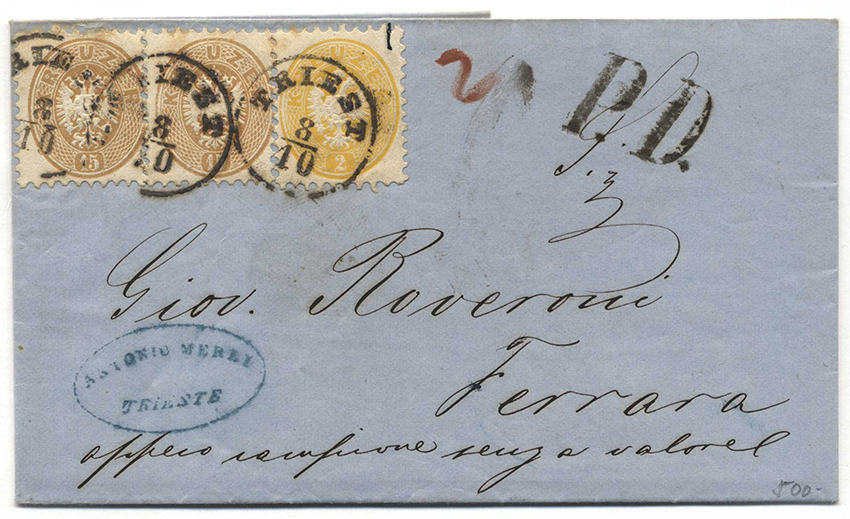 KREUZER KREUZER KREUZER
15 15 2
TRIEST TRIEST TRIEST
8/10 8/10 8/10
2
P.D.
Giov. Roveroni
ANTONIO MERLI
TRIESTE
Ferrara
senza valore
500-